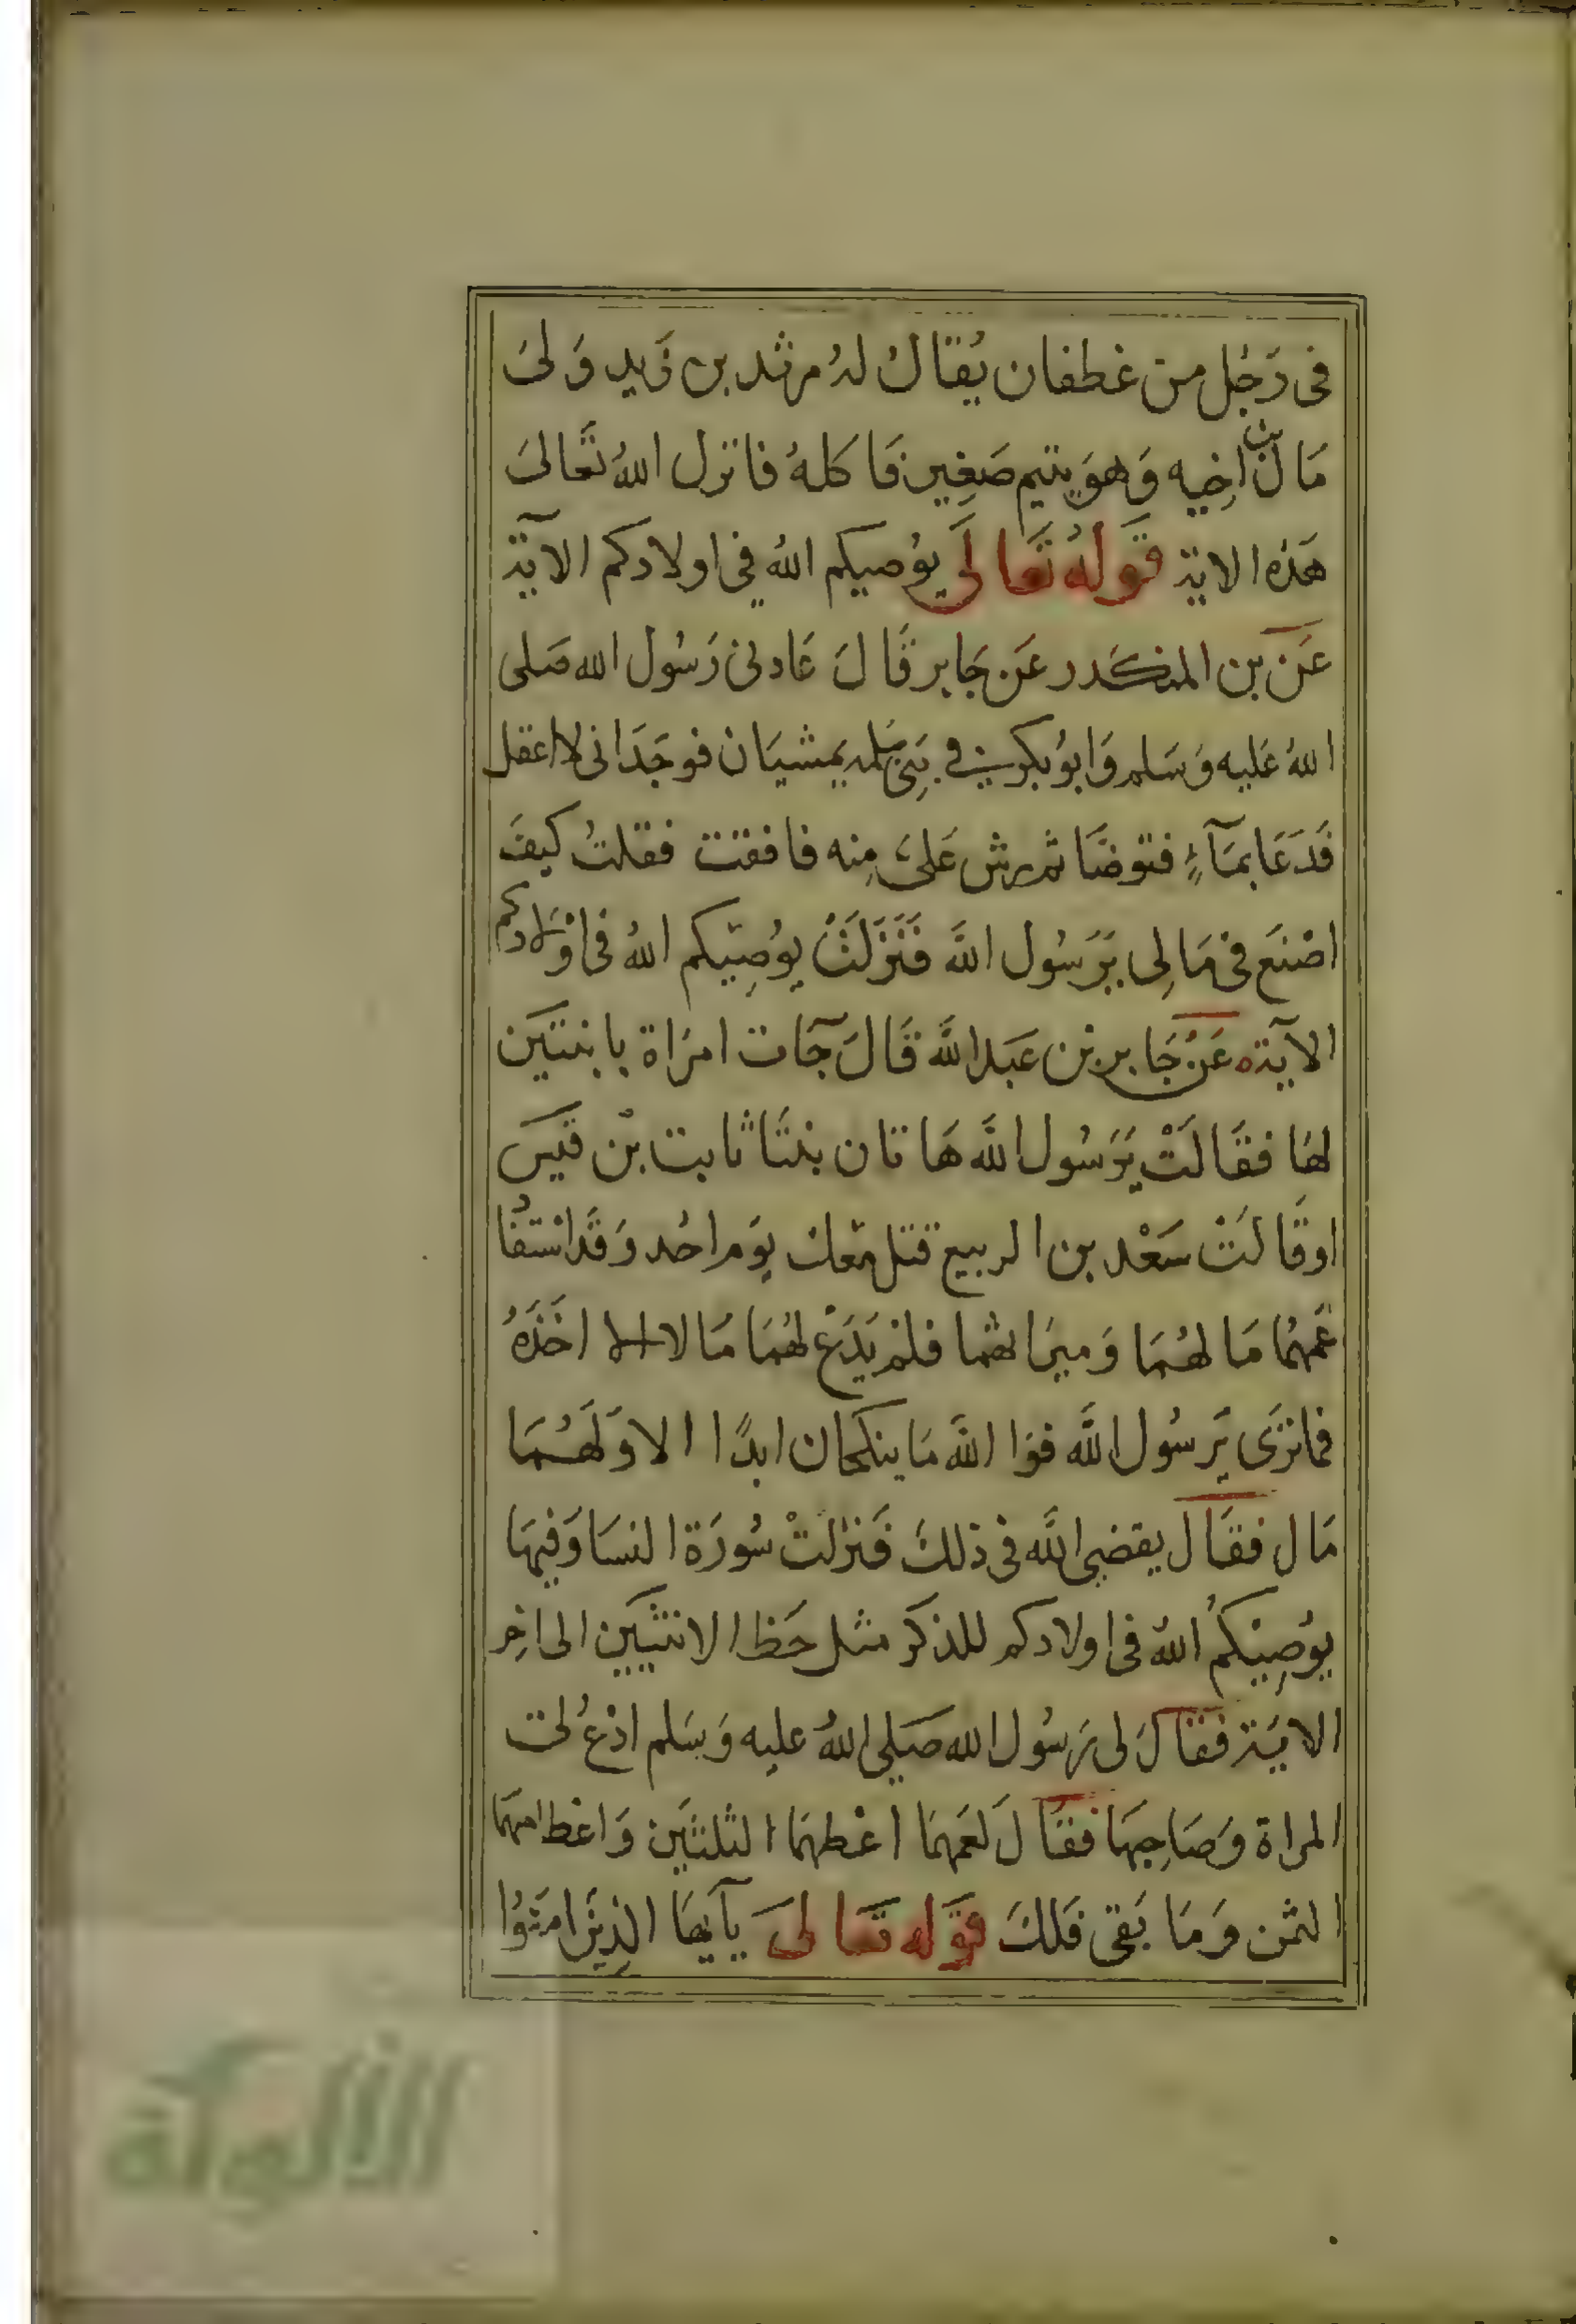 في رَجُل من غطفان يُقالُ لهُ مرثد بن زَيد وَلىَ
مَال بن اخِيه وَهوَ يتيم صَغِير فاكلهُ فانزل اللهُ تَعَالىَ
هَذه الاية قَولهُ تَعَالَى يوُصيكم اللهُ في اولادكم الآية
عَن بن المنكدر عَن جَابر قَالَ عَادنى رَسُول الله صلى
اللهُ عَليه وَسَلم وَابوُ بكر في بَنِى سَلمه يَمشيَان فوجَدَانى لا اعقل
فَدَعَا بمَآءٍ فتوضَّا ثم رش عَلىَّ مِنه فافقت فقلتُ كيفَ
اصْنَع فى مَالِى يَرَسُول اللَّه فَنَزَلَتْ يوُصِيكم اللهُ فى اوْلادكم
الآية عَنْ جَابر بن عَبد اللَّه قَالَ جَآت امرَاة بابنتَين
لهَا فقَالَتْ يَرَسُول اللَّه هَاتان بنتَا ثابت بْن قيَس
اوقَالتْ سَعْد بن الربيع قتل مَعك يَوم احُد وَقَد اسْتفَا
عَمهُمَا مَالهُمَا وَميرَاثهمَا فلمْ يَدَعْ لهُمَا مَالا الا اخَذَهُ
فمَا ترَى يَرَسُول اللَّه فوَا اللَّه مَا ينكحَان ابدًا الا وَلَهُمَا
مَال فقَال يقضِى اللَّه فى ذلكَ فَنزلتْ سُورَة النسَا وَفيهَا
يوُصِيْكُم اللهُ فى اولادكم للذكر مثل حَظ الانثيَين الى اخِر
الايَة فقَالَ لى رَسُول الله صَلى اللهُ عليه وَسَلم ادْعُ لى
المراة وَصَاحِبهَا فقَالَ لعَمهمَا اعْطهمَا الثلثَين وَاعْط امهمَا
الثمن وَمَا بَقى فَلكَ قَوله تعَالىَ يآيهَا الذِينَ امَنُوا
الألوكة